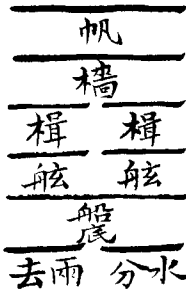 帆
檣
楫 楫
舷 舷
船底
去雨 分水